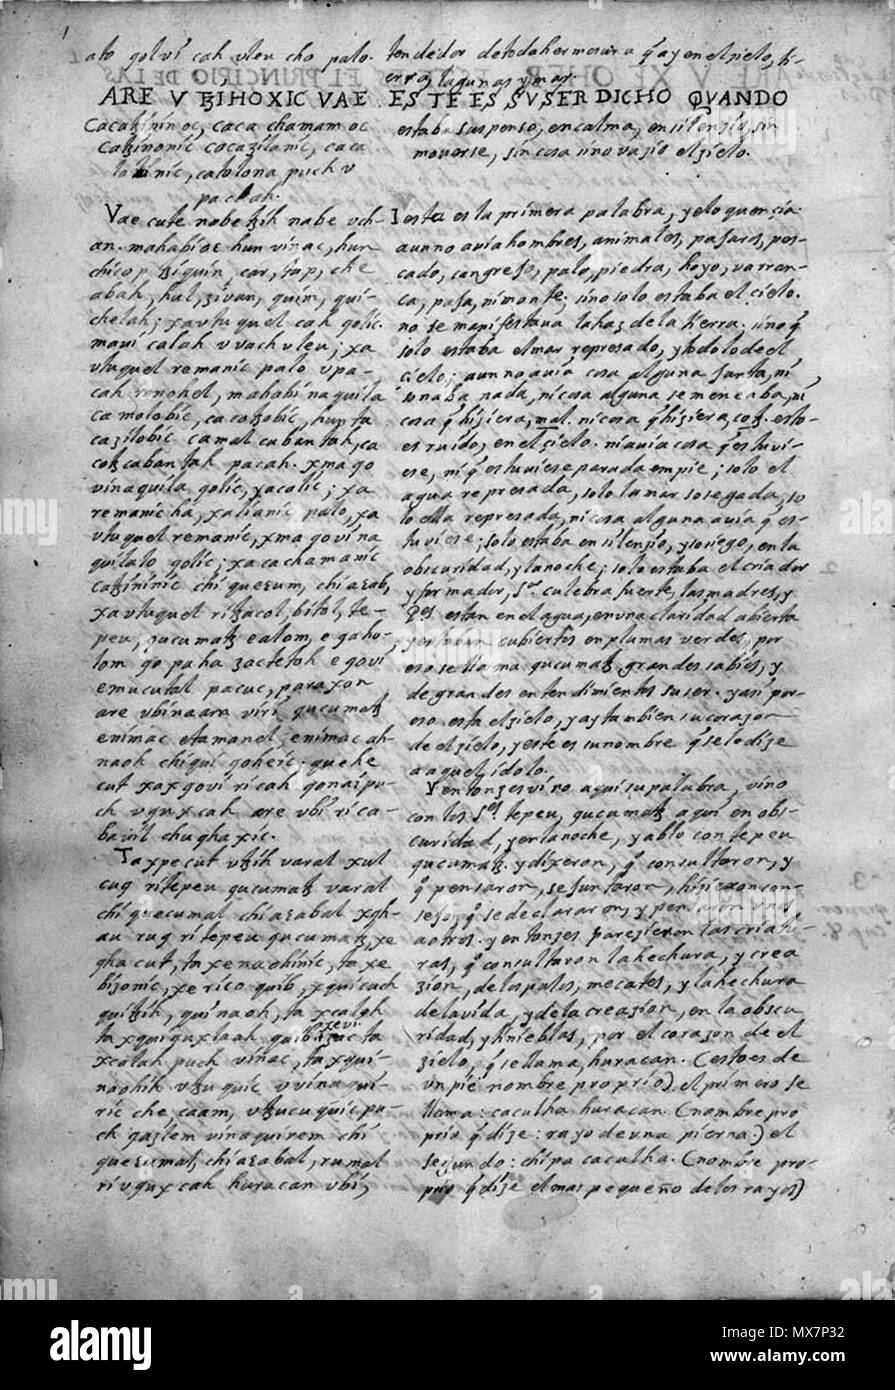 1
ato golvi cah uleu cho palo.
ARE V ꜩIHOXIC VAE
Cacaꜩinin oc, caca chamam oc
Caꜩinonic cacaꜫilanic, caca
lolinic, catolona puch v
pa cah.
Vae cute nabe ꜩih nabe uch-
an. mahabioꜫ hun vinac, hun
chicop, ꜩiquin, car, tap, che
abah, hul, ꜫivan, quim, qui-
chelah; xa utuquel cah golic.
mavi calah u vach uleu; xa
utuquel remanic palo v pa-
cah ronohel, mahabi naquila
ca molobic, ca cotzobic, hunta
cazilobic camal cabantah, ca
cotz cabantah pa cah. x ma go
vinaquila golic, yacalic; xa
remanic ha, xa lianic palo, xa
utuquel remanic, x ma go vi na
quilalo golic; xa ca chamanic
catzininic chi quequm, chi aꜫab,
xa utuquel ri tzacol, bitol, te-
peu, qucumatz e alom, e qaho-
lom go pa ha zactetoh e govi
e mucutal pa cuc, pa raxon
are ubinaam viri qucumatz
e nimac etamanel, e nimac ah-
naoh chi qui goheic. quehe
cut xax govi ri cah gonaipu-
ch u qux cah are ubi ri ca-
bavil chughaxic.
Ta xpe cut utzih varal xul
cuq ri tepeu qucumatz varal
chi quecumal chi aꜫabal xgh-
au ruq ri tepeu qucumatz, xe
gha cut, ta xe naohinic, ta xe
bizonic, xe rico quib, x quicuch
qui tzih, qui naoh, ta x calah
ta x qui quxlaah quib xevi zac ta
x calah puch vinac, ta x qui-
naohih utzuquic u vinaqui-
ric che caam, utzucuquic pu-
ch gaꜫlem vinaquirem chi
quequmal chi aꜫabal, rumal
ri u qux cah huracan ubi,
tendedor de toda hermosura q̃ ay en el zielo, ti-
erra, lagunas y mar.
ESTE ES SV SER DICHO QVANDO
estaba suspenso, en calma, en silenzio, sin
moverse, sin cosa sino vazio el zielo.
Y esta es la primera palabra, y eloquencia.
aun no avia hombres, animales, pajaros, pes-
cado, cangrejo, palo, piedra, hoyo, varran-
ca, paja, ni monte; sino solo estaba el cielo.
no se manifestava la haz de la tierra; sino q̃
solo estaba el mar represado, y todo lo de el
cielo; aun no avia cosa alguna junta, ni
sonaba nada, ni cosa alguna se meneaba, ni
cosa q̃ hiziera, mal. ni cosa q̃ hiziera, cotz. esto-
es ruido, en el zielo. ni avia cosa q̃ estuvi-
ese, ni q̃ estuviese parada em pie; solo el
agua represada, solo la mar sosegada, so
lo ella represada, ni cosa alguna avia q̃ es-
tuviese; solo estaba en silenzio, y sosiego, en la
obscuridad, y la noche; solo estaba el criador
y formador, Sr. culebra fuerte, las madres, y
Pes. estan en el agua, en una claridad abierta
y estaban cubiertos en plumas verdes, por
eso se llama qucumatz, grandes sabios, y
de grandes entendimientos su ser. y asi por-
eso esta el zielo, y ay tambien su corazon
de el zielo, y este es su nombre q̃ se lo dize
a aquel idolo.
Y entonzes vino aqui su palabra, vino
con los Ses. tepeu, qucumatz aqui en obs-
curidad, y en la noche, y ablo con tepeu
qucumatz. y dixeron, q̃ consultaron, y
q̃ pensaron, se juntaron, hizieron con-
sejo, q̃ se declararon, y pensaron unos
a otros. y entonzes parezieron las criatu-
ras, q̃ consultaron la hechura, y crea
zion, de los palos, mecates, y la hechura
de la vida, y de la creazion, en la obscu
ridad, y tinieblas, por el corazon de el
zielo, q̃ se llama, huracan. (esto es de
un pie nombre proprio) el primero se
llama: caculha huracan. (nombre pro
prio q̃ dize: rayo de una pierna.) el
segundo: chipa caculha. (nombre pro-
prio q̃ dize el mas pequeño de los rayos)
alamy stock photo
Image ID: MX7P32
www.alamy.com